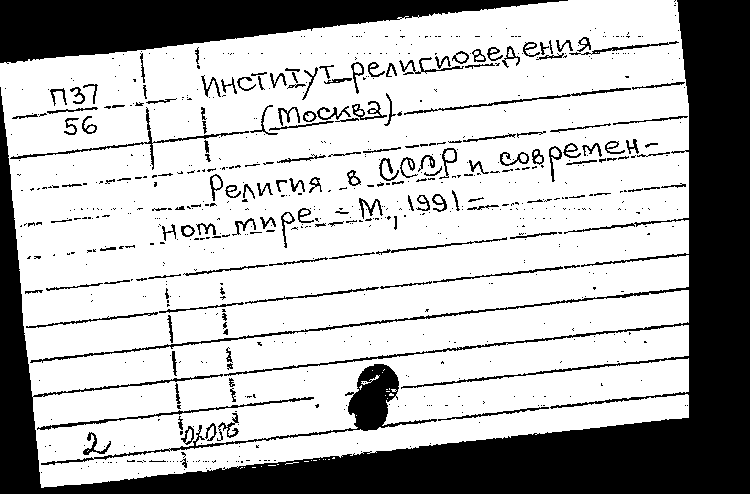 П37
56
Институт религиоведения
(Москва).
Религия в СССР и современ-
ном мире. - М., 1991 -
2